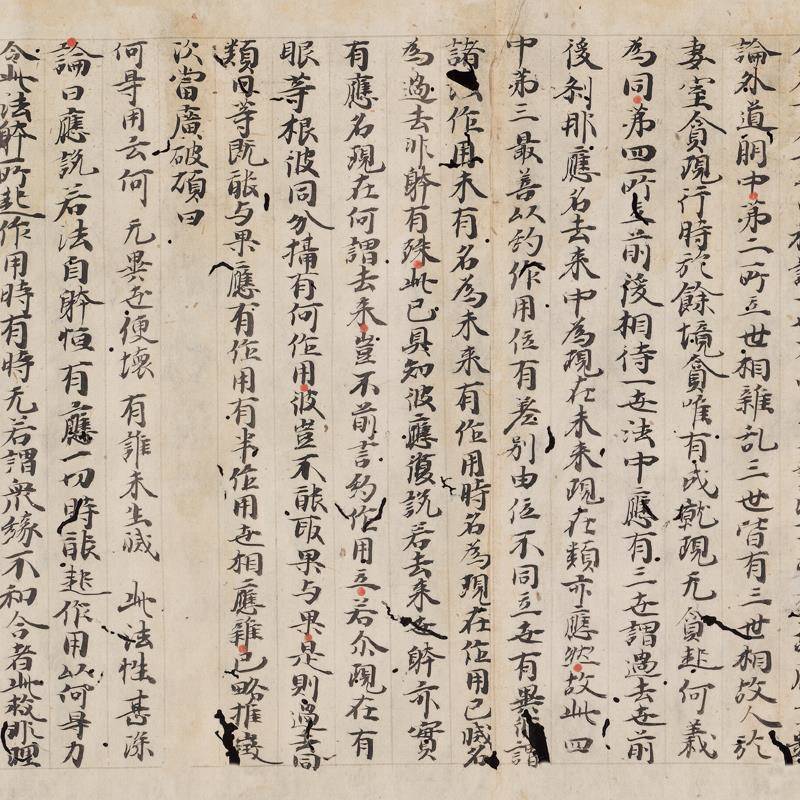 論外道朋中第二所立世相雜乱三世皆有三世相故人於
妻室貪現行時於餘境貪唯有成就現无貪起何義
為同第四所立前後相待一世法中應有三世謂過去世前
後剎那應名去来中為現在未来現在類亦應然故此四
中第三最善以約作用位有差別由位不同立世有異謂
諸法作用未有名為未来有作用時名為現在作用已滅名
為過去非躰有殊此已具知彼應復説若去来世躰亦實
有應名現在何謂去来豈不前言約作用立若尒現在有
眼等根彼同分攝有何作用彼豈不能取果与果是則過去同
類因等既能与果應有作用有半作用世相應雜已略推徵
次當廣破頌曰
何㝵用云何 无異世便壞 有誰未生滅 此法性甚深
論曰應説若法自躰恒有應一切時能起作用以何㝵力
令此法躰所起作用時有時无若謂衆緣不和合者此救非理